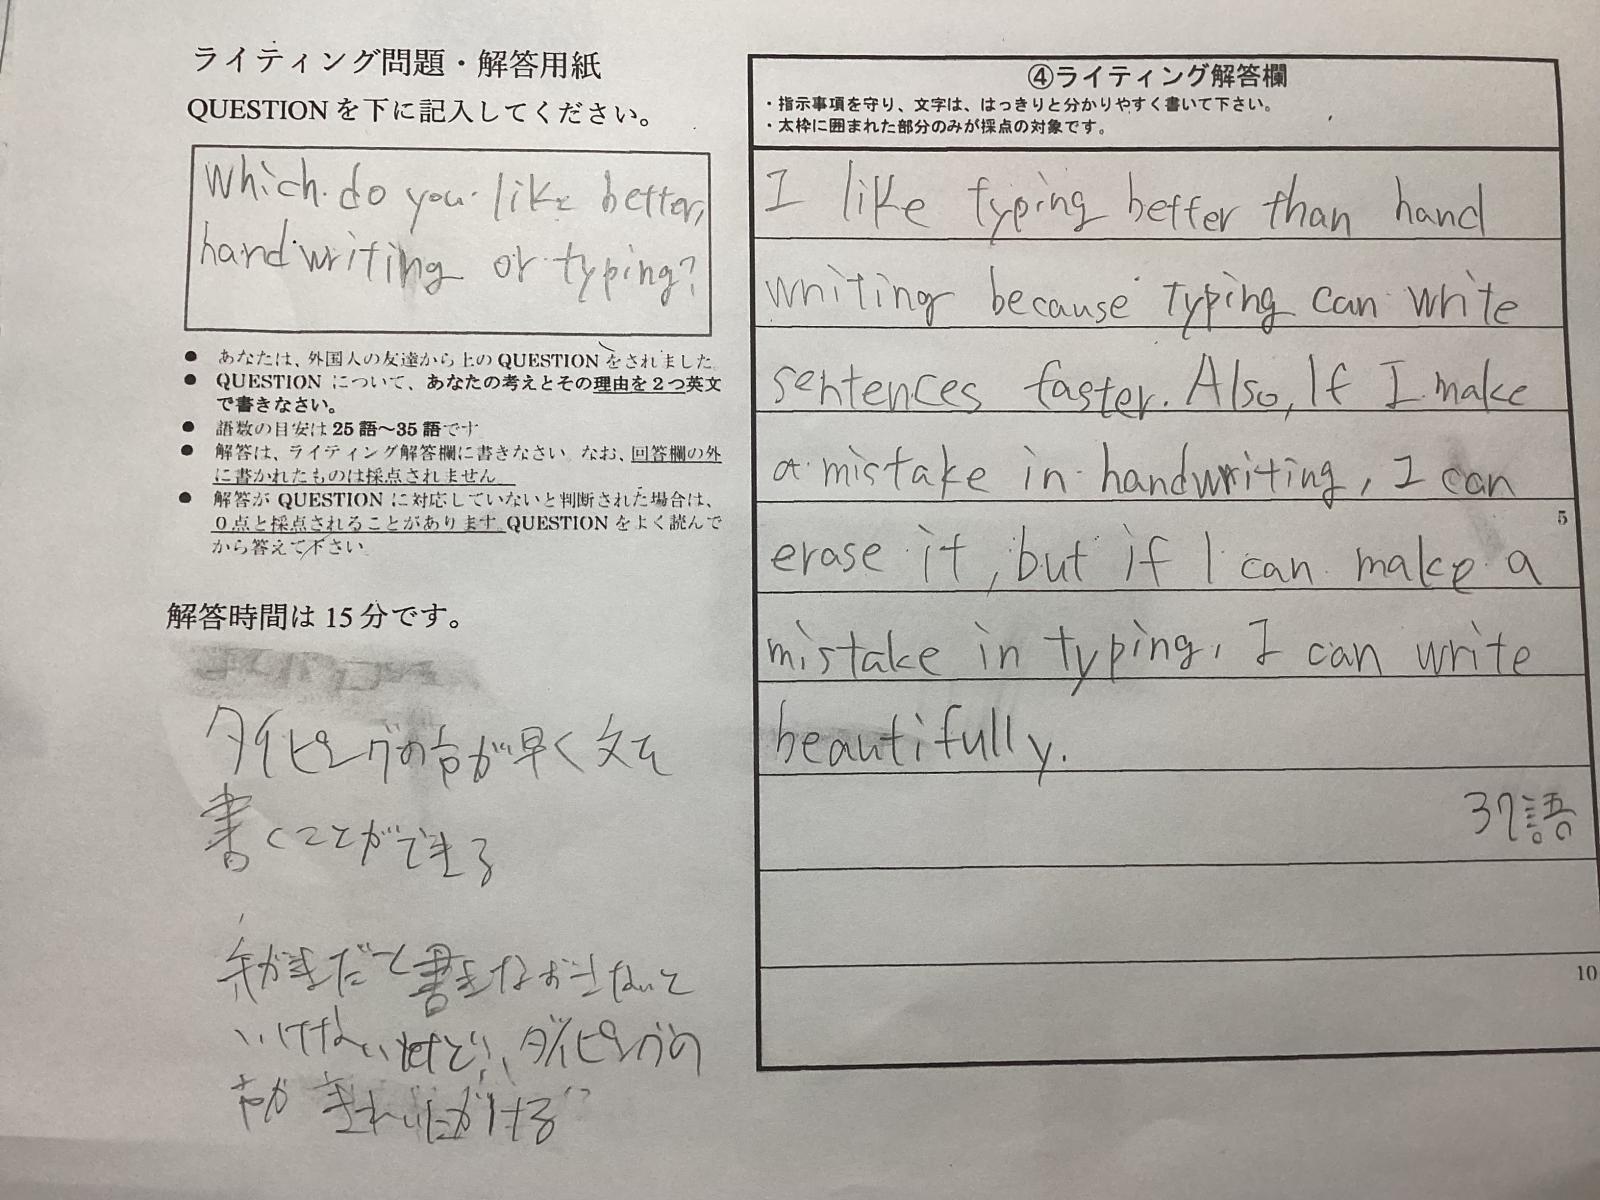 ライティング問題・解答用紙
QUESTIONを下に記入してください。
Which do you like better,
handwriting or typing?
● あなたは、外国人の友達から上のQUESTIONをされました
● QUESTION について、あなたの考えとその理由を2つ英文
で書きなさい。
● 語数の目安は25語～35語です
● 解答は、ライティング解答欄に書きなさい なお、回答欄の外
に書かれたものは採点されません
● 解答がQUESTION に対応していないと判断された場合は、
0点と採点されることがあります QUESTIONをよく読んで
から答えて下さい
解答時間は15分です。
タイピングの方が早く文を
書くことができる
手がきだと書きなおさないと
いけないけど、タイピングの
方が きれいにかける
④ライティング解答欄
・指示事項を守り、文字は、はっきりと分かりやすく書いて下さい。
・太枠に囲まれた部分のみが採点の対象です。
I like typing better than hand
writing because typing can write
sentences faster. Also, If I make
a mistake in handwriting, I can
5
erase it, but if I can make a
mistake in typing, I can write
beautifully.
37語
10